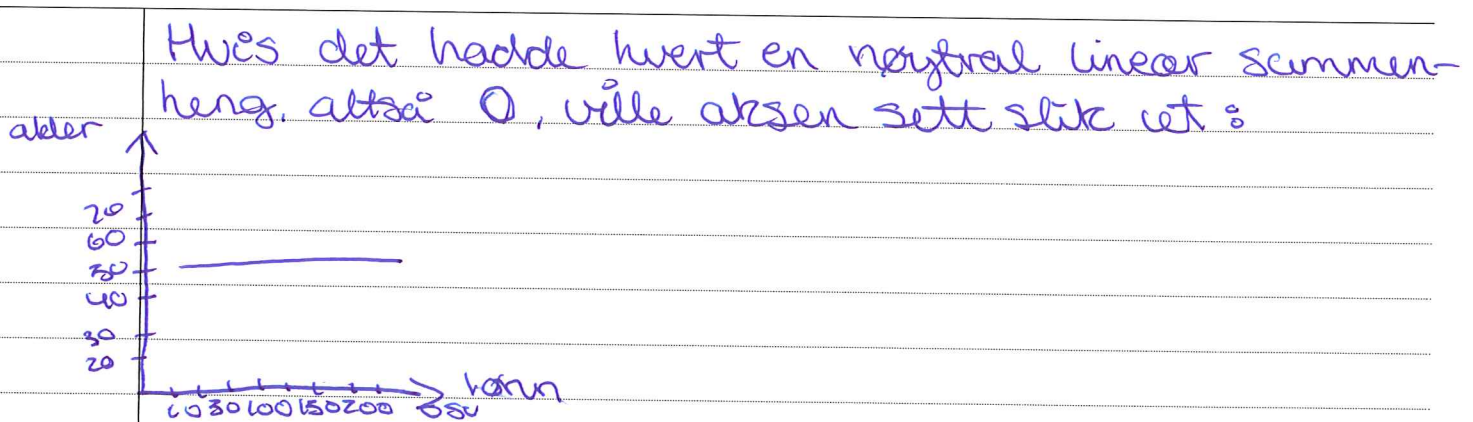 Hvis det hadde hvert en nøytral lineær sammen-
heng, altså 0, ville aksen sett slik ut:
alder
70
60
50
40
30
20
lønn
10 30 100 150 200 osv